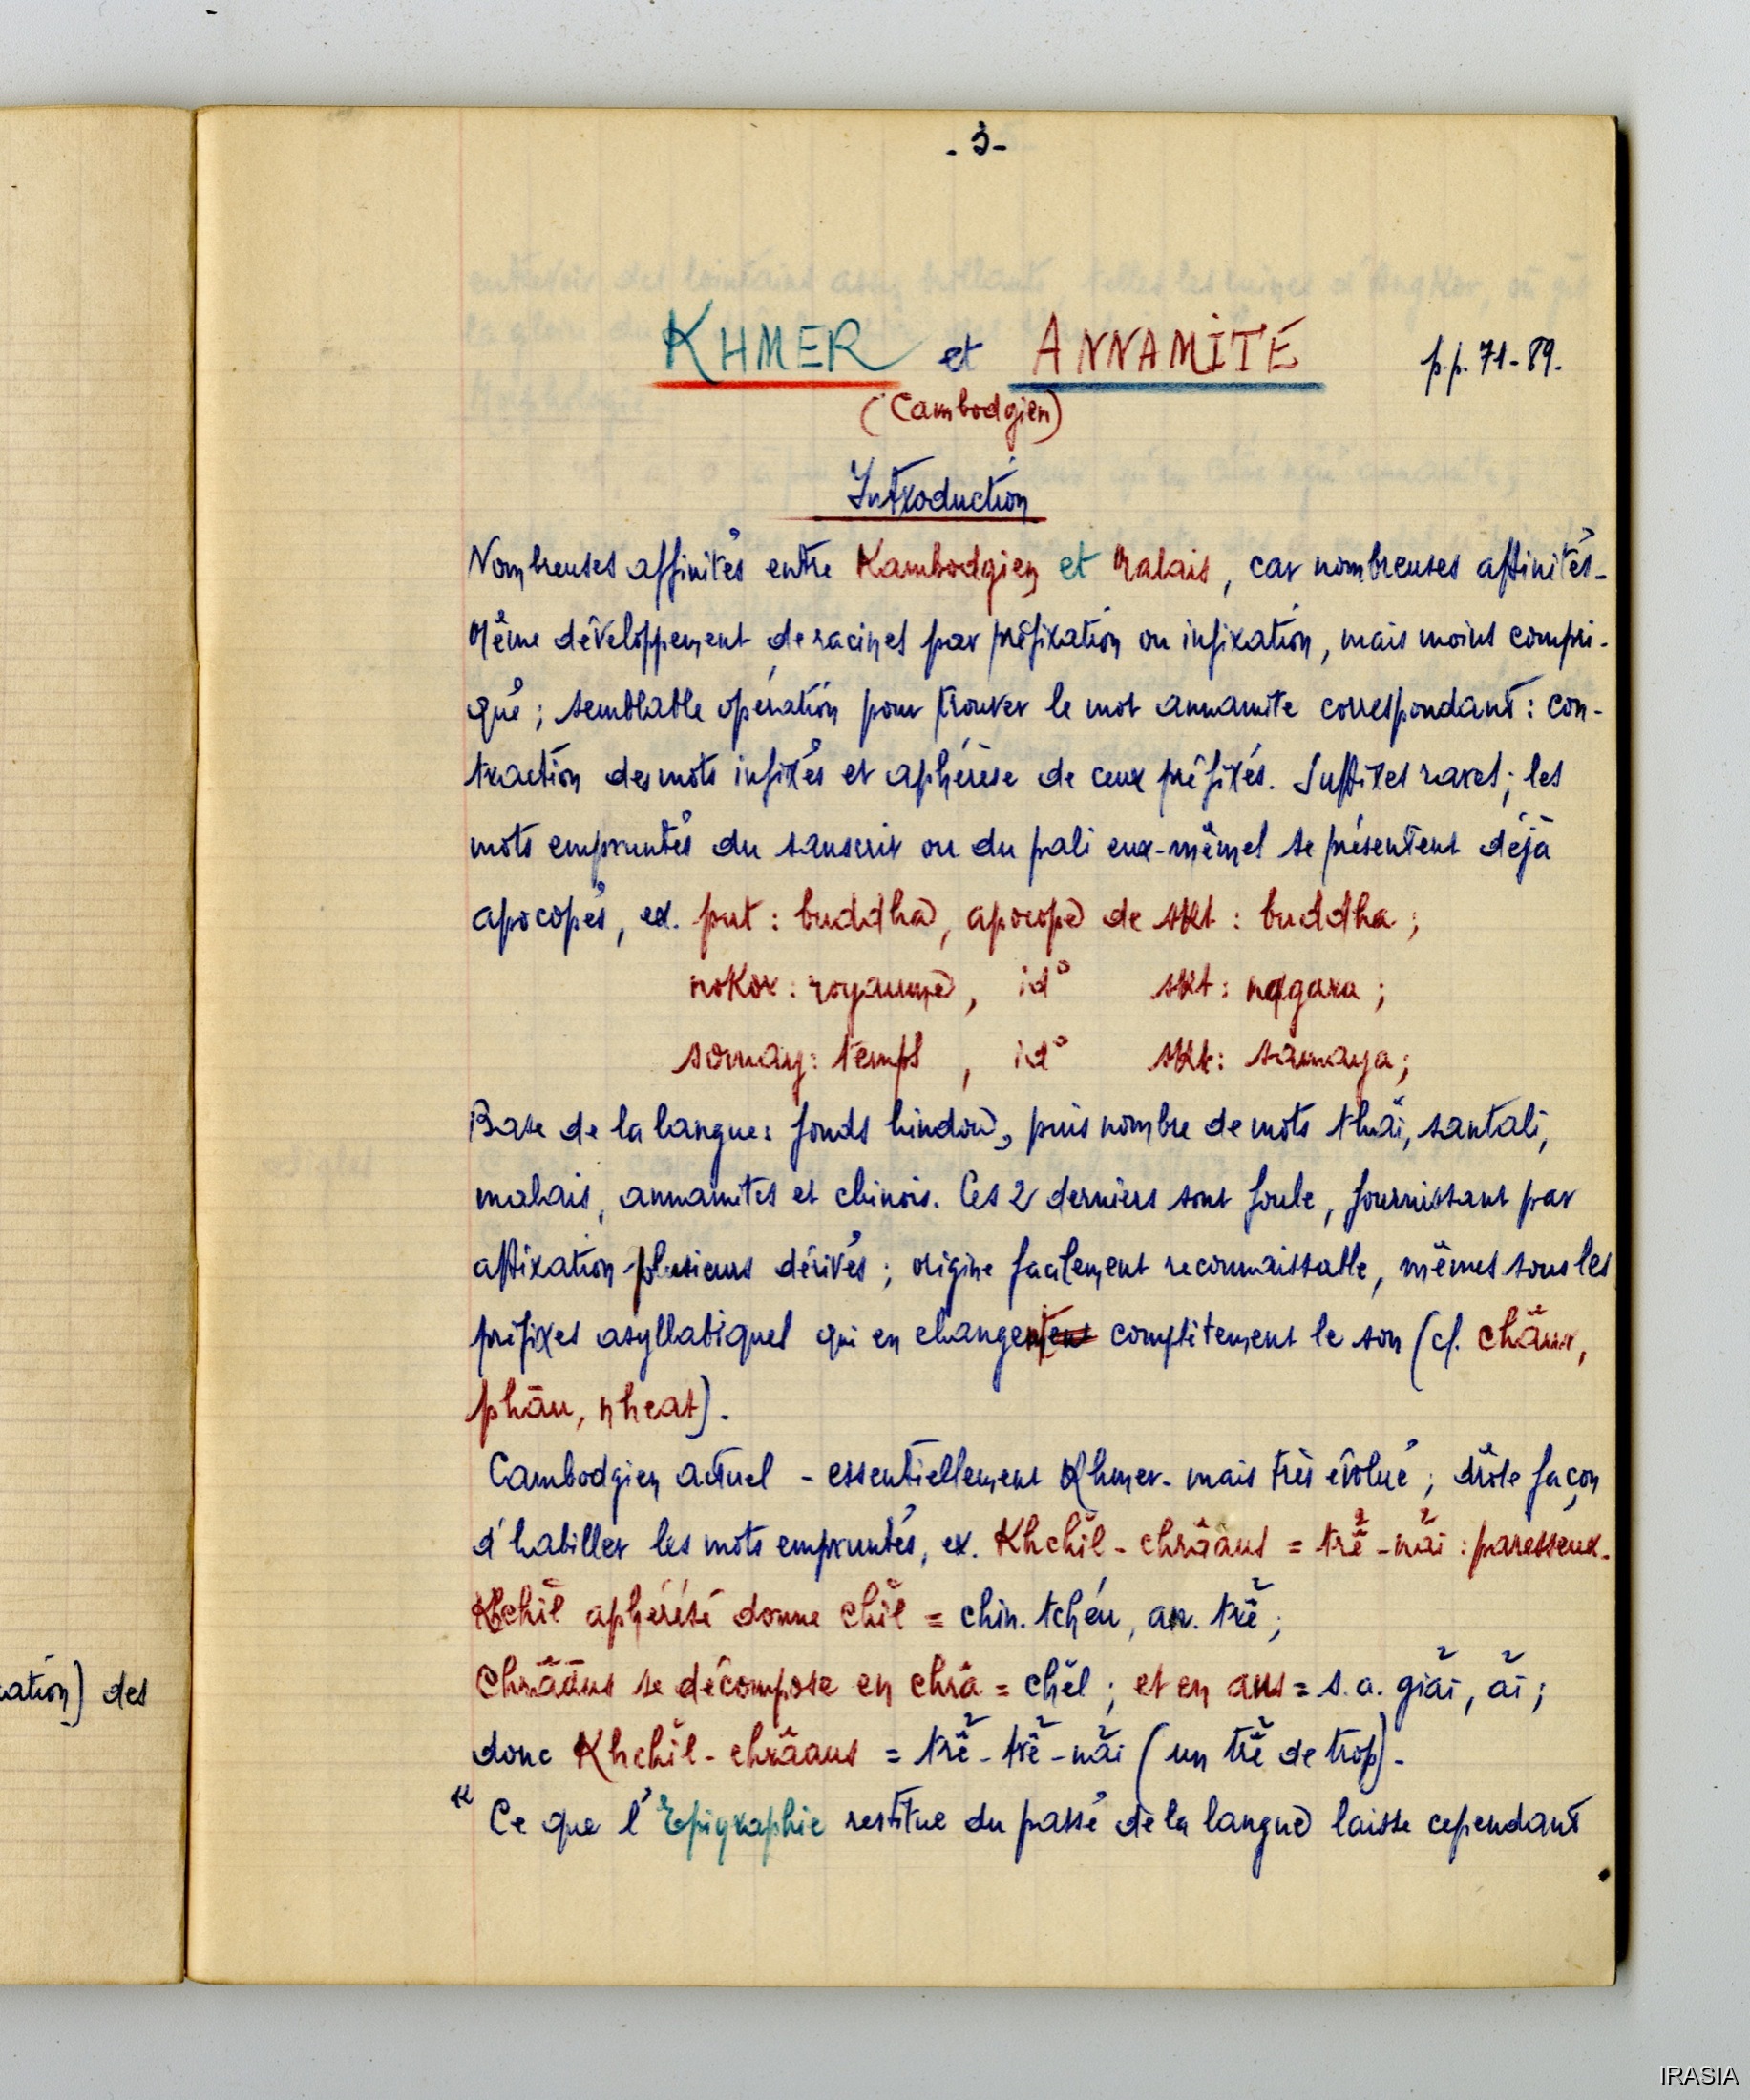 - 3 -
KHMER et ANNAMITE p.p. 71-89.
(Cambodgien)
Introduction
Nombreuses affinités entre Kambodgien et Malais, car nombreuses affinités-
Même développement de racines par préfixation ou infixation, mais moins compri-
qué ; semblable opération pour trouver le mot annamite correspondant : con-
traction des mots infixés et aphérèse de ceux préfixés. Suffixes rares ; les
mots empruntés du sanscrit ou du pali eux-mêmes se présentent déjà
apocopés, ex. put : buddha, apocope de skt : buddha ;
nokor : royaume, id° skt : nagara ;
somay : temps, id° skt : samaya ;
Base de la langue : fonds hindou, puis nombre de mots thăi, santali,
malais, annamites et chinois. Ces 2 derniers sont foule, fournissant par
affixation plusieurs dérivés ; origine facilement reconnaissable, mêmes sous les
préfixes asyllabiques qui en changent complètement le son (cf.
phâu, nheat).
Cambodgien actuel - essentiellement Khmer - mais très évolué ; drôle façon
d'habiller les mots empruntés, ex. Khchĭl - chrâăus = trễ - nải : paresseux.
Khchĭl aphérésé donne chĭl = chin. tchéu, an. trễ ;
Chrâăus se décompose en chrâ = chĕl ; et en aus = s.a. giải, ải ;
donc Khchĭl - chrâaus = trễ - trễ - nải (un trễ de trop) -
" Ce que l'Epigraphie restitue du passé de la langue laisse cependant
ation) des
IRASIA